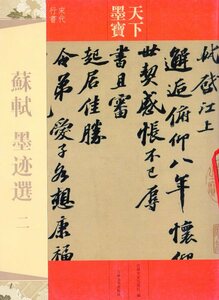 宋代
行書
天下
墨寶
蘇軾 墨迹選 二
邂逅俯仰八年懷仰
世契感悵不已辱
書且審
起居佳勝
令弟愛子各想康福